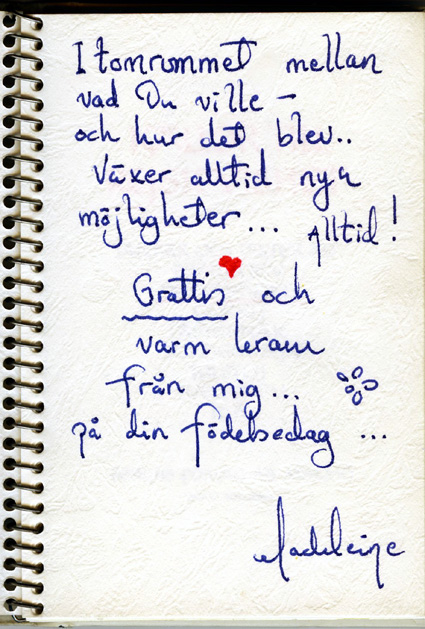 I tomrummet mellan
vad Du ville –
och hur det blev..
växer alltid nya
möjligheter... Alltid!
Grattis och
varm kram
från mig...
på din födelsedag ...
Madeleine